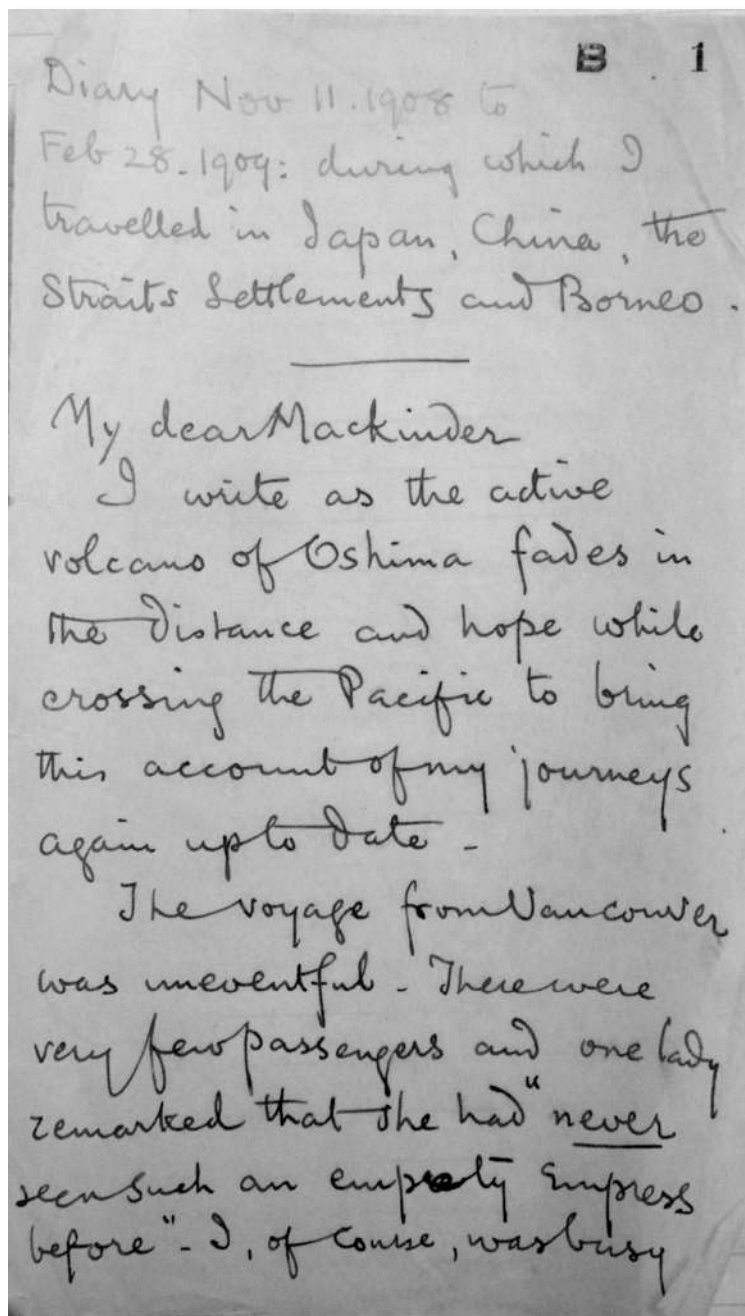 B 1
Diary Nov 11. 1908 to
Feb 28. 1909: during which I
travelled in Japan, China, the
Straits Settlements and Borneo.
My dear Mackinder
I write as the active
volcano of Oshima fades in
the distance and hope while
crossing the Pacific to bring
this account of my journeys
again up to date -
The voyage from Vancouver
was uneventful - There were
very few passengers and one lady
remarked that she had "never
seen such an empty Empress
before" - I, of course, was busy